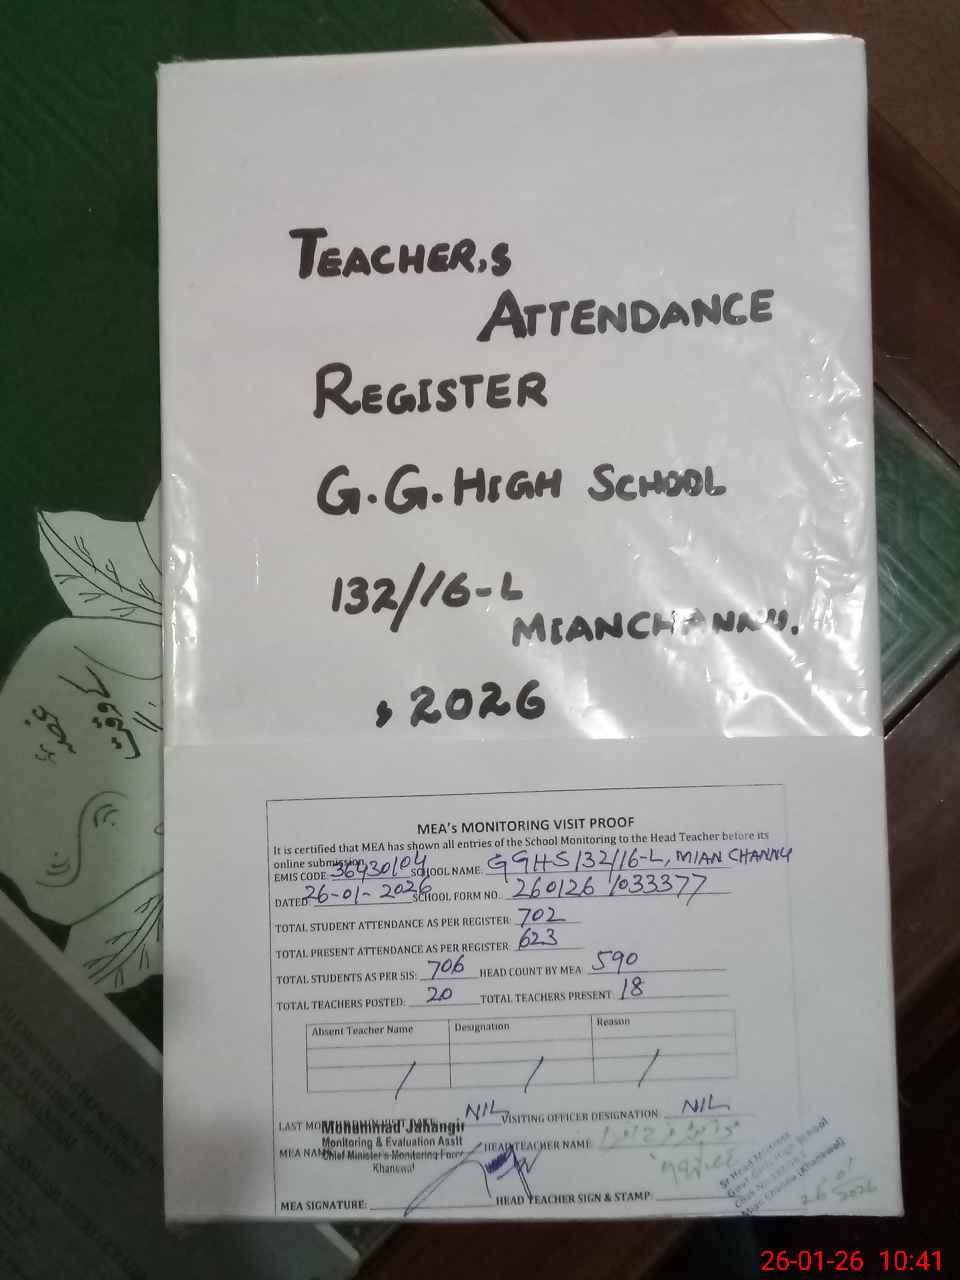 TEACHER,S
ATTENDANCE
REGISTER
G.G. HIGH SCHOOL
132/16-L
MIANCHANNU.
, 2026
MEA's MONITORING VISIT PROOF
It is certified that MEA has shown all entries of the School Monitoring to the Head Teacher before its
online submission.
EMIS CODE: 36430104 SCHOOL NAME: GGHS 132/16-L, MIAN CHANNU
DATED: 26-01-2026 SCHOOL FORM NO.: 260126 1033377
TOTAL STUDENT ATTENDANCE AS PER REGISTER: 702
TOTAL PRESENT ATTENDANCE AS PER REGISTER 623
TOTAL STUDENTS AS PER SIS: 706 HEAD COUNT BY MEA: 590
TOTAL TEACHERS POSTED: 20 TOTAL TEACHERS PRESENT: 18
Absent Teacher Name Designation Reason
/ / /
LAST NIL VISITING OFFICER DESIGNATION NIL
Mohammad Jahangir
Monitoring & Evaluation Asstt
MEA NAME HEAD TEACHER NAME:
Chief Minister's Monitoring Force
Khanewal
MEA SIGNATURE: HEAD TEACHER SIGN & STAMP:
Sr Head Mistress
Govt Girls High School
Mian Channu (Khanewal)
26-01
2026
26-01-26 10:41